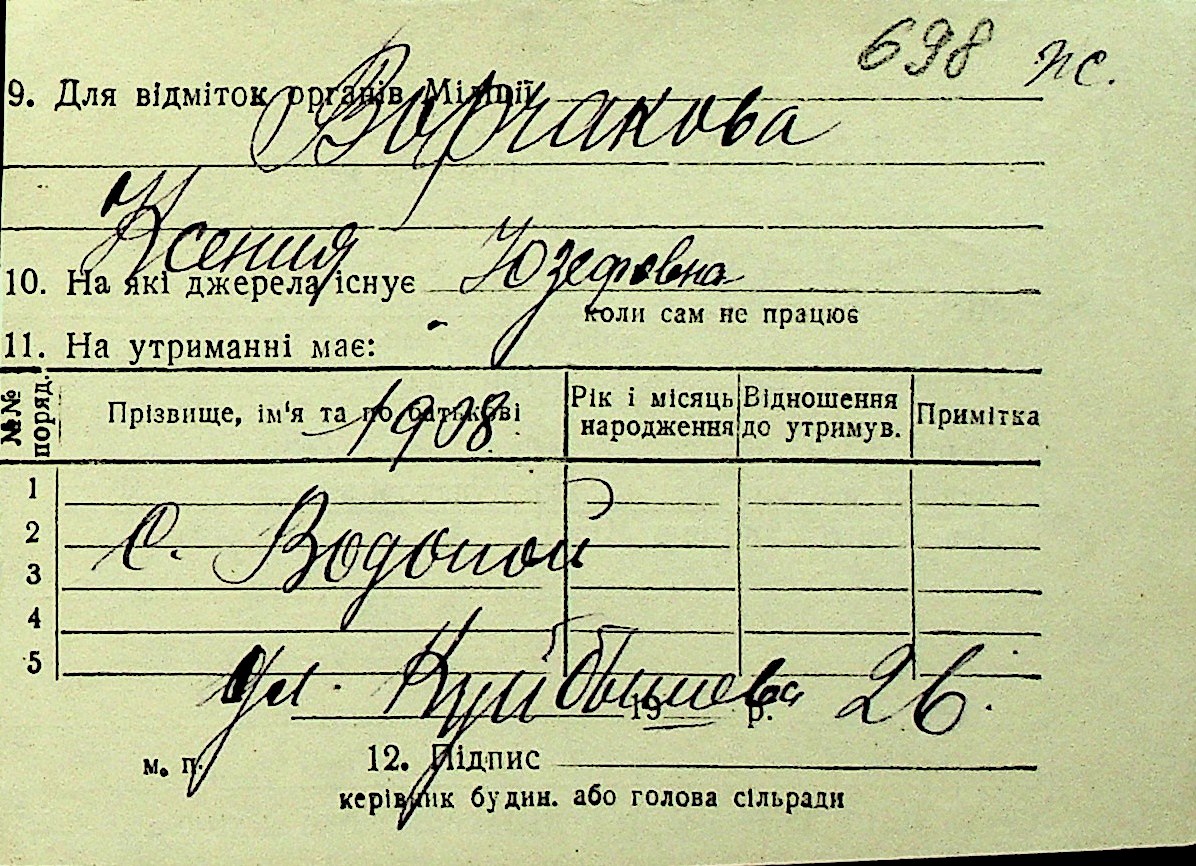 698 пс.
9. Для відміток органів Міліції
Ворчакова
Ксения Юзефовна
10. На які джерела існує
коли сам не працює
11. На утриманні має:
№№ поряд. Прізвище, ім'я та по батькові Рік і місяць народження Відношення до утримув. Примітка
1908
1
2
с. Водопой
3
4
5
ул. Куйбышева 26.
19 р.
м. п. 12. Підпис
керівник будин. або голова сільради